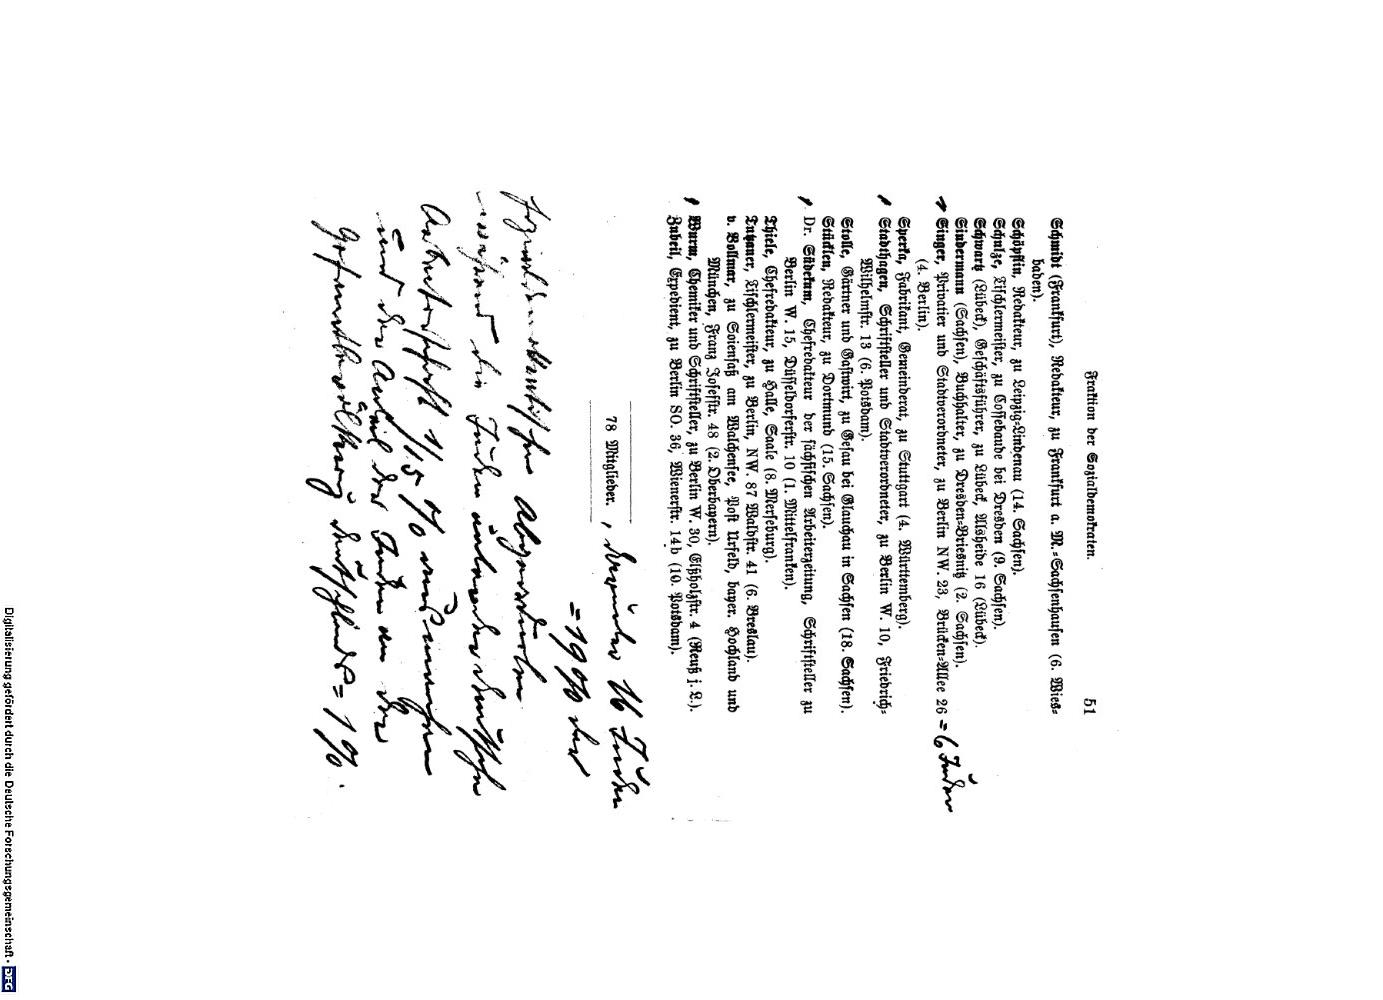 Fraktion der Sozialdemokraten. 51
Schmidt (Frankfurt), Redakteur, zu Frankfurt a. M.-Sachsenhausen (6. Wies-
baden).
Schöpflin, Redakteur, zu Leipzig-Lindenau (14. Sachsen).
Schulze, Tischlermeister, zu Cossebaude bei Dresden (9. Sachsen).
Schwartz (Lübeck), Geschäftsführer, zu Lübeck, Alsheide 16 (Lübeck).
Sindermann (Sachsen), Buchhalter, zu Dresden-Briesnitz (2. Sachsen).
Singer, Privatier und Stadtverordneter, zu Berlin NW. 23, Brücken-Allee 26 = 6 Juden
(4. Berlin).
Sperka, Fabrikant, Gemeinderat, zu Stuttgart (4. Württemberg).
Stadthagen, Schriftsteller und Stadtverordneter, zu Berlin W. 10, Friedrich-
Wilhelmstr. 13 (6. Potsdam).
Stolle, Gärtner und Gastwirt, zu Gesau bei Glauchau in Sachsen (18. Sachsen).
Stücklen, Redakteur, zu Dortmund (15. Sachsen).
Dr. Südekum, Chefredakteur der sächsischen Arbeiterzeitung, Schriftsteller zu
Berlin W. 15, Düsseldorferstr. 10 (1. Mittelfranken).
Thiele, Chefredakteur, zu Halle, Saale (8. Merseburg).
Tutzauer, Tischlermeister, zu Berlin, NW. 87 Waldstr. 41 (6. Breslau).
v. Vollmar, zu Soiensaß am Walchensee, Post Urfeld, bayer. Hochland und
München, Franz Josefstr. 48 (2. Oberbayern).
Wurm, Chemiker und Schriftsteller, zu Berlin W. 30, Eißholzstr. 4 (Reuß j. L.).
Zubeil, Expedient, zu Berlin SO. 36, Wienerstr. 14b (10. Potsdam).
78 Mitglieder. , darunter 16 Juden
= 19 % der
sozialdemokratischen Abgeordneten
während die Juden unter der deutschen
Arbeiterschaft 1/15 % ausmachen
und der Anteil der Juden an der
Gesamtbevölkerung Deutschlands = 1 %.
Digitalisierung gefördert durch die Deutsche Forschungsgemeinschaft - DFG